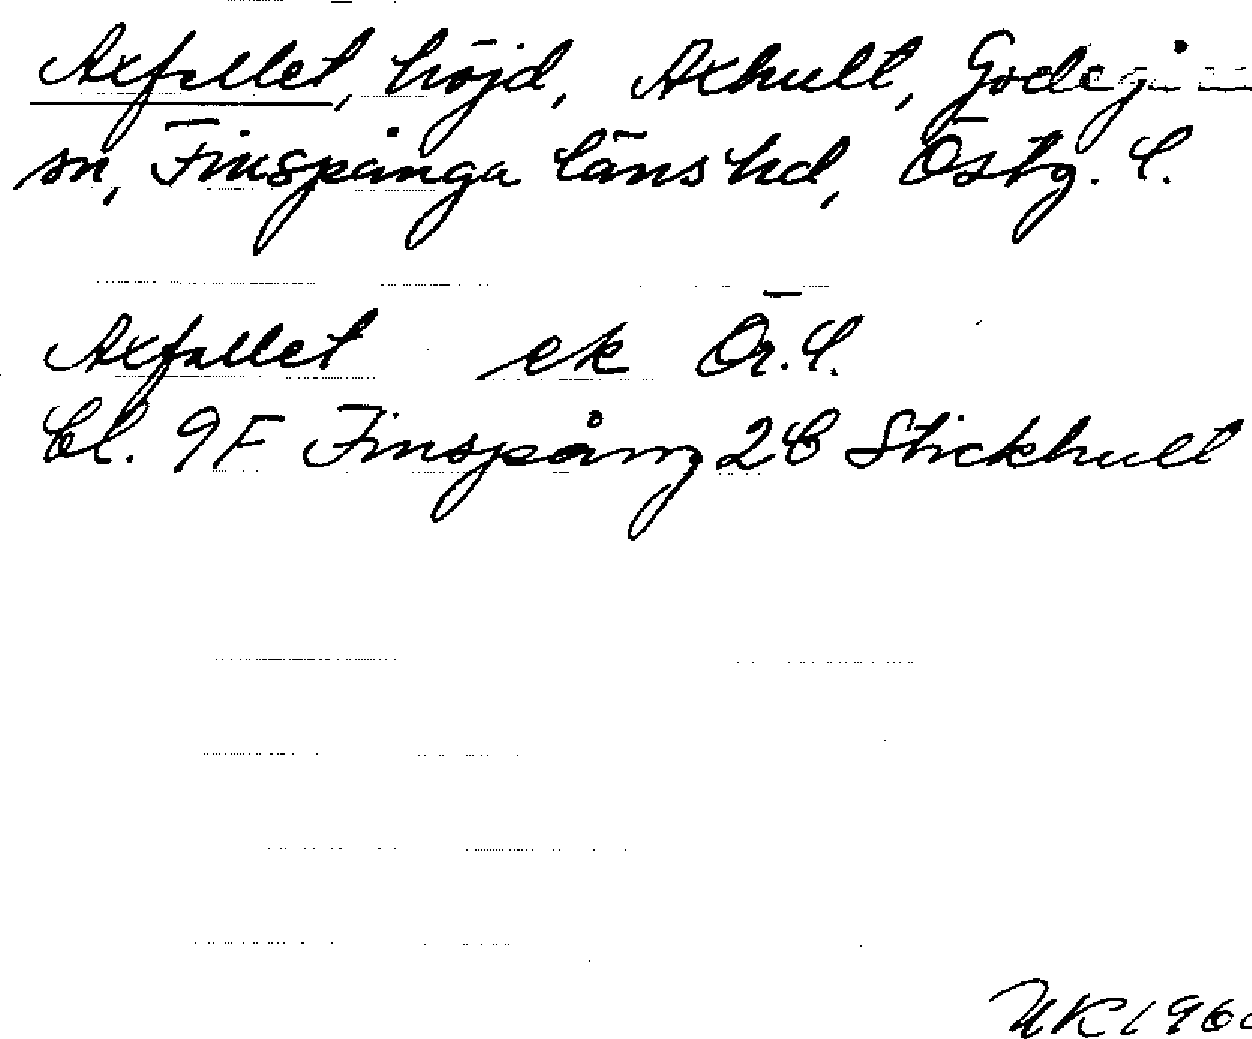 Axfallet, höjd, Axhult, Godeg
sn, Finspånga läns hd, Östg. l.
Axfallet ek Ör. l.
bl. 9F Finspång 2b Stickhult
UK 196